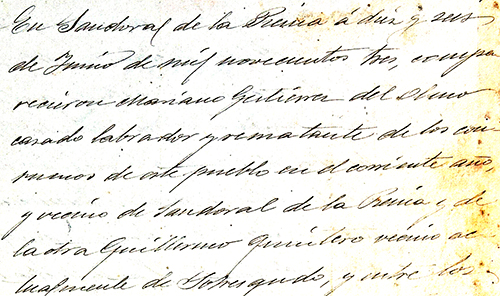 En Sandoval de la Reina á diez y seis
de Junio de mil novecientos tres, compa
recieron Mariano Gutiérrez del Olmo
casado labrador y rematante de los con
sumos de este pueblo en el corriente año,
y vecino de Sandoval de la Reina y de
la otra Guillermo Quintero vecino ac
tualmente de Sotresgudo, y entre los